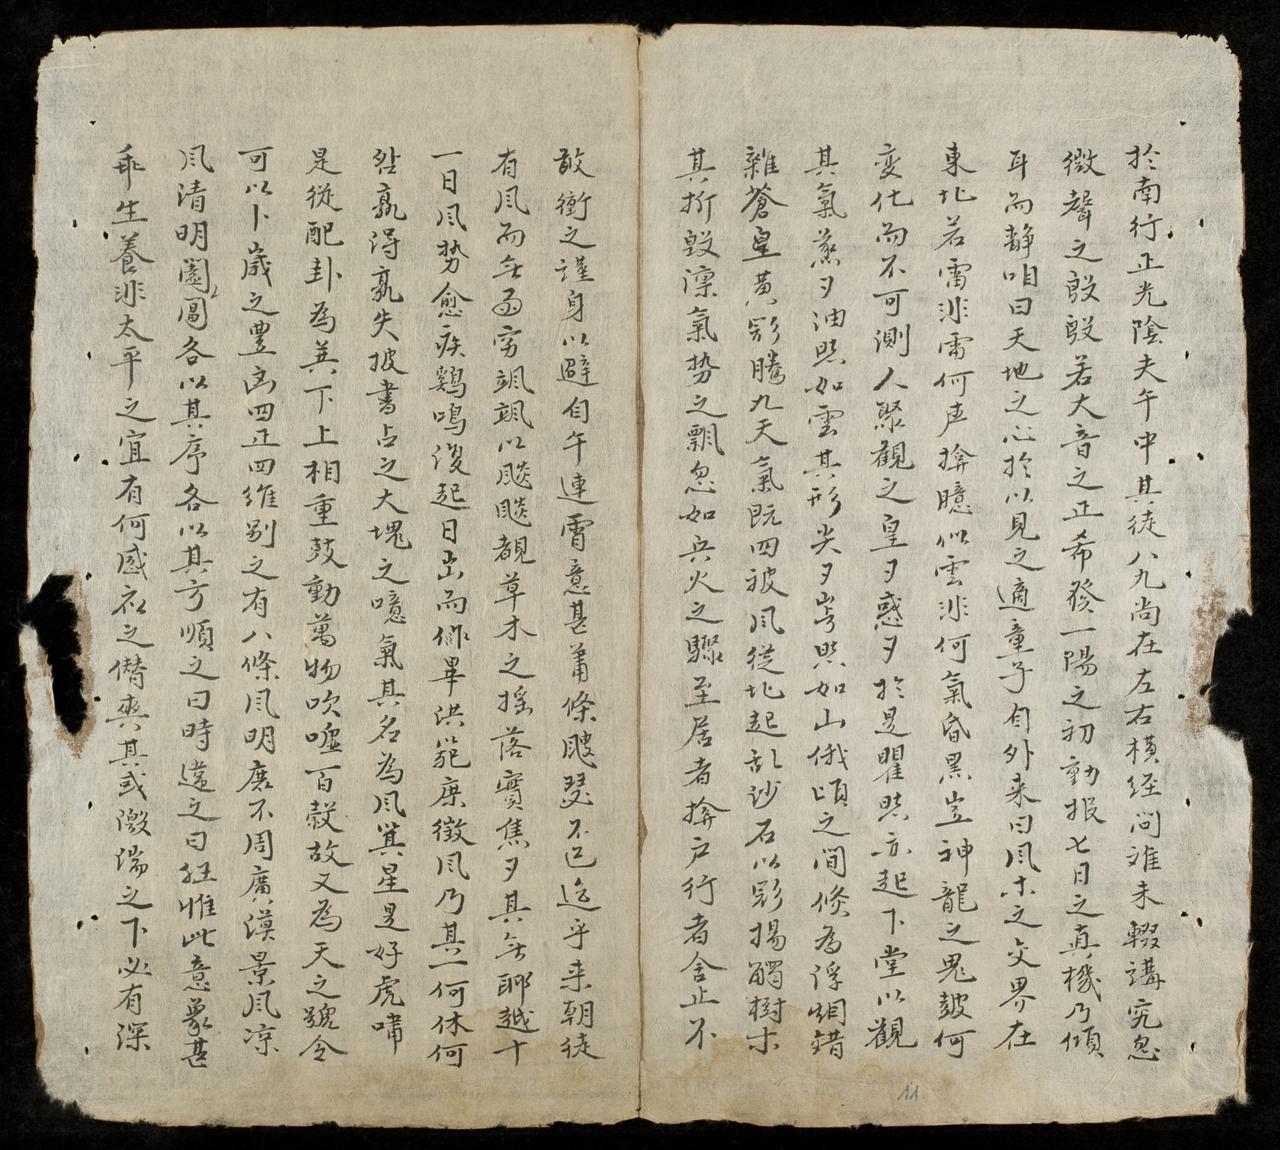 於南行正光陰夫午中其徒八九尚在左右橫経问难未輟講究忽
微聲之殷殷若大音之正希發一陽之初動报七日之真機乃傾
耳而静咱曰天地之心於以見之適童子自外来曰风木之交界在
東北若雷非雷何声搇臆似雲非何氣昏黑岦神龍之鬼皷何
变化而不可測人聚觀之皇夕惑夕於是瞿然亦起下堂以觀
其氣蒸夕油然如雲其形尖夕岑然如山俄頃之间倐為浮烟錯
雜蒼皇黄影騰九天氣既四被风從北起乱沙石以影揚觸樹木
其折毁凛氣势之飄忽如兵火之驟至居者搇户行者舍止不
敢衝之謹身以避自午連霄意甚蕭條颼瑟不已迄乎来朝徒
有风而無雨穷飒飒以飈飈覩草木之摇落實焦夕其無聊越十
一日风势愈疾鷄鳴後起日出而俳畢洪範庶徴风乃其一何休何
咎孰得孰失披書占之大塊之噫氣其名為风箕星是好虎嘯
是従配卦為巽下上相重鼓動萬物吹嘘百榖故又為天之號令
可以卜歲之豊凶四正四維别之有八條风明庶不周廣漠景风凉
风清明閶闔各以其序各以其方順之曰時違之曰狂惟此意象甚
乖生養非太平之宜有何感礻之僣爽其或激湍之下必有深